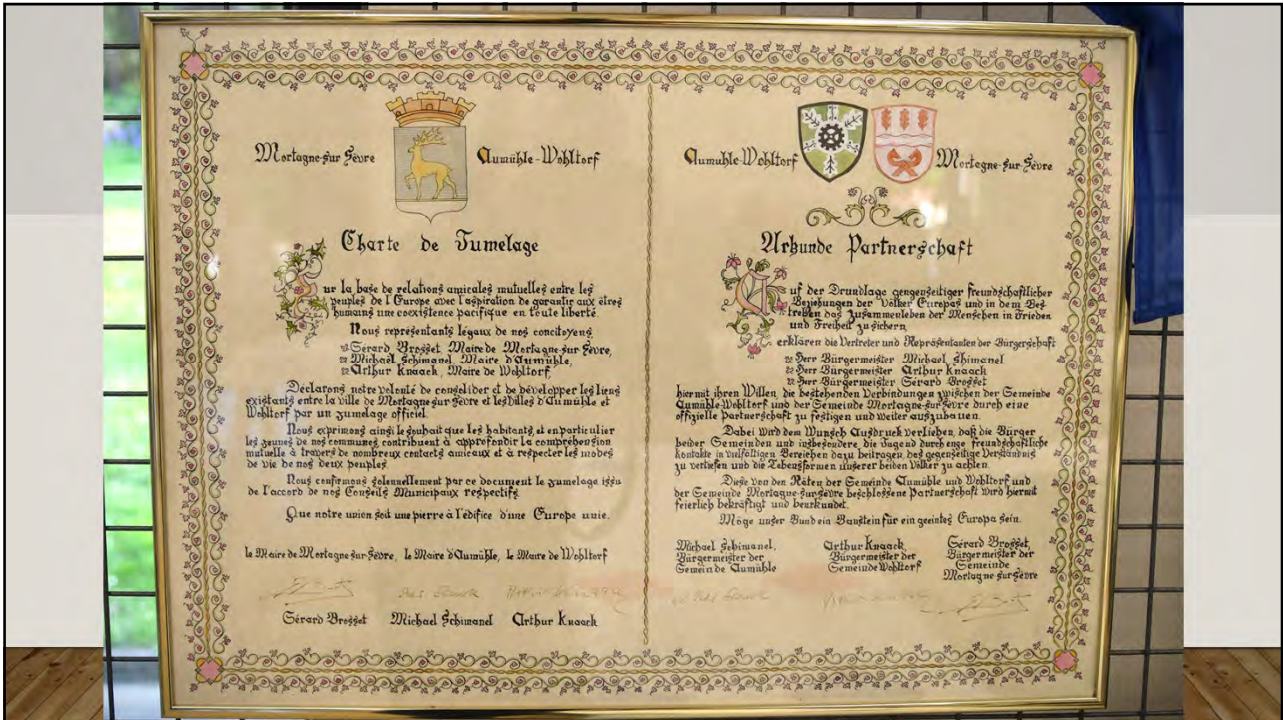 Mortagne-sur-Sèvre
Aumühle-Wohltorf
Charte de Jumelage
Sur la base de relations amicales mutuelles entre les
peuples de l'Europe avec l'aspiration de garantir aux êtres
humains une coexistence pacifique en toute liberté.
Nous représentants légaux de nos concitoyens
Gérard Brosset, Maire de Mortagne-sur-Sèvre,
Michael Schimanel, Maire d'Aumühle,
Arthur Knaack, Maire de Wohltorf,
Déclarons notre volonté de consolider et de développer les liens
existants entre la ville de Mortagne-sur-Sèvre et les Villes d'Aumühle et
Wohltorf par un jumelage officiel.
Nous exprimons ainsi le souhait que les habitants, et en particulier
les jeunes de nos communes contribuent à approfondir la compréhension
mutuelle à travers de nombreux contacts amicaux et à respecter les modes
de vie de nos deux peuples.
Nous confirmons solennellement par ce document le jumelage issu
de l'accord de nos Conseils Municipaux respectifs.
Que notre union soit une pierre à l'édifice d'une Europe unie.
le Maire de Mortagne-sur-Sèvre, le Maire d'Aumühle, le Maire de Wohltorf
Gérard Brosset Michael Schimanel Arthur Knaack
Aumühle-Wohltorf
Mortagne-sur-Sèvre
Urkunde Partnerschaft
Auf der Grundlage gengenseitiger freundschaftlicher
Beziehungen der Völker Europas und in dem Bes-
treben das Zusammenleben der Menschen in Frieden
und Freiheit zu sichern,
erklären die Vertreter und Repräsentanten der Bürgerschaft
Herr Bürgermeister Michael Shimanel
Herr Bürgermeister Arthur Knaack
Herr Bürgermeister Gérard Brosset
hiermit ihren Willen, die bestehenden Verbindungen zwischen der Gemeinde
Aumühle-Wohltorf und der Gemeinde Mortagne-sur-Sèvre durch eine
offizielle Partnerschaft zu festigen und weiter auszubauen.
Dabei wird dem Wunsch Ausdruck verliehen, daß die Bürger
beider Gemeinden und insbesondere die Jugend durch enge freundschaftliche
Kontakte in vielfältigen Bereichen dazu beitragen, das gegenseitige Verständnis
zu vertiefen und die Lebensformen unserer beiden Völker zu achten.
Diese von den Räten der Gemeinde Aumühle und Wohltorf und
der Gemeinde Mortagne-sur-Sèvre beschlossene Partnerschaft wird hiermit
feierlich bekräftigt und beurkundet.
Möge unser Bund ein Baustein für ein geeintes Europa sein.
Michael Schimanel, Arthur Knaack, Gérard Brosset,
Bürgermeister der Bürgermeister der Bürgermeister der
Gemeinde Aumühle Gemeinde Wohltorf Gemeinde
Mortagne-sur-Sèvre